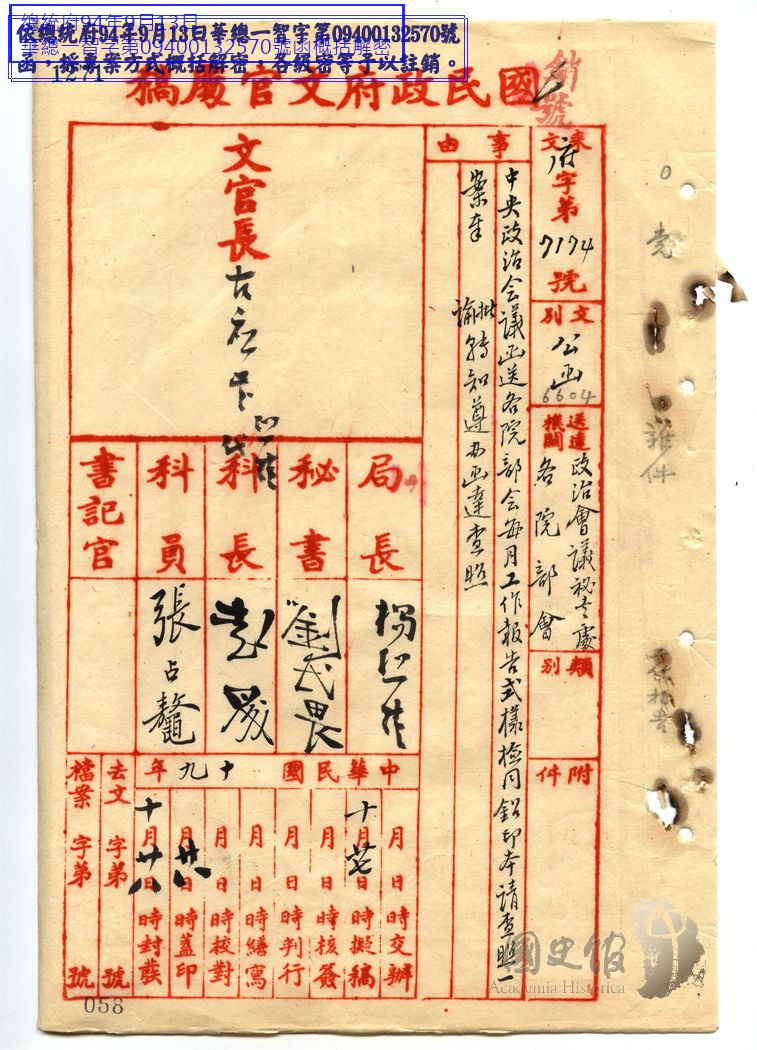 依總統府94年9月13日華總一智字第09400132570號
函，採專案方式概括解密，各級密等予以註銷。
總統府94年9月13日
華總一智字第09400132570號函概括解密
1271
國民政府文官處稿
銷號
來文 府字第7174號
事由
中央政治会議函送各院部会每月工作報告式樣檢同鉛印本請查照
案奉
批
諭轉知遵办函達查照
文別 公函
6604
送達機關 政治會議祕書處
各院部會
類別
附件
文官長
局長
祕書
科長
科員
書記官
劉
張占鼇
中華民國十九年
月日時交辦
十月廿七日時擬稿
月日時核簽
月日時判行
月日時繕寫
月日時校對
月廿八日時蓋印
十月廿八日時封發
去文 字第 號
檔案 字第 號
雜件
058
國史館
Academia Historica